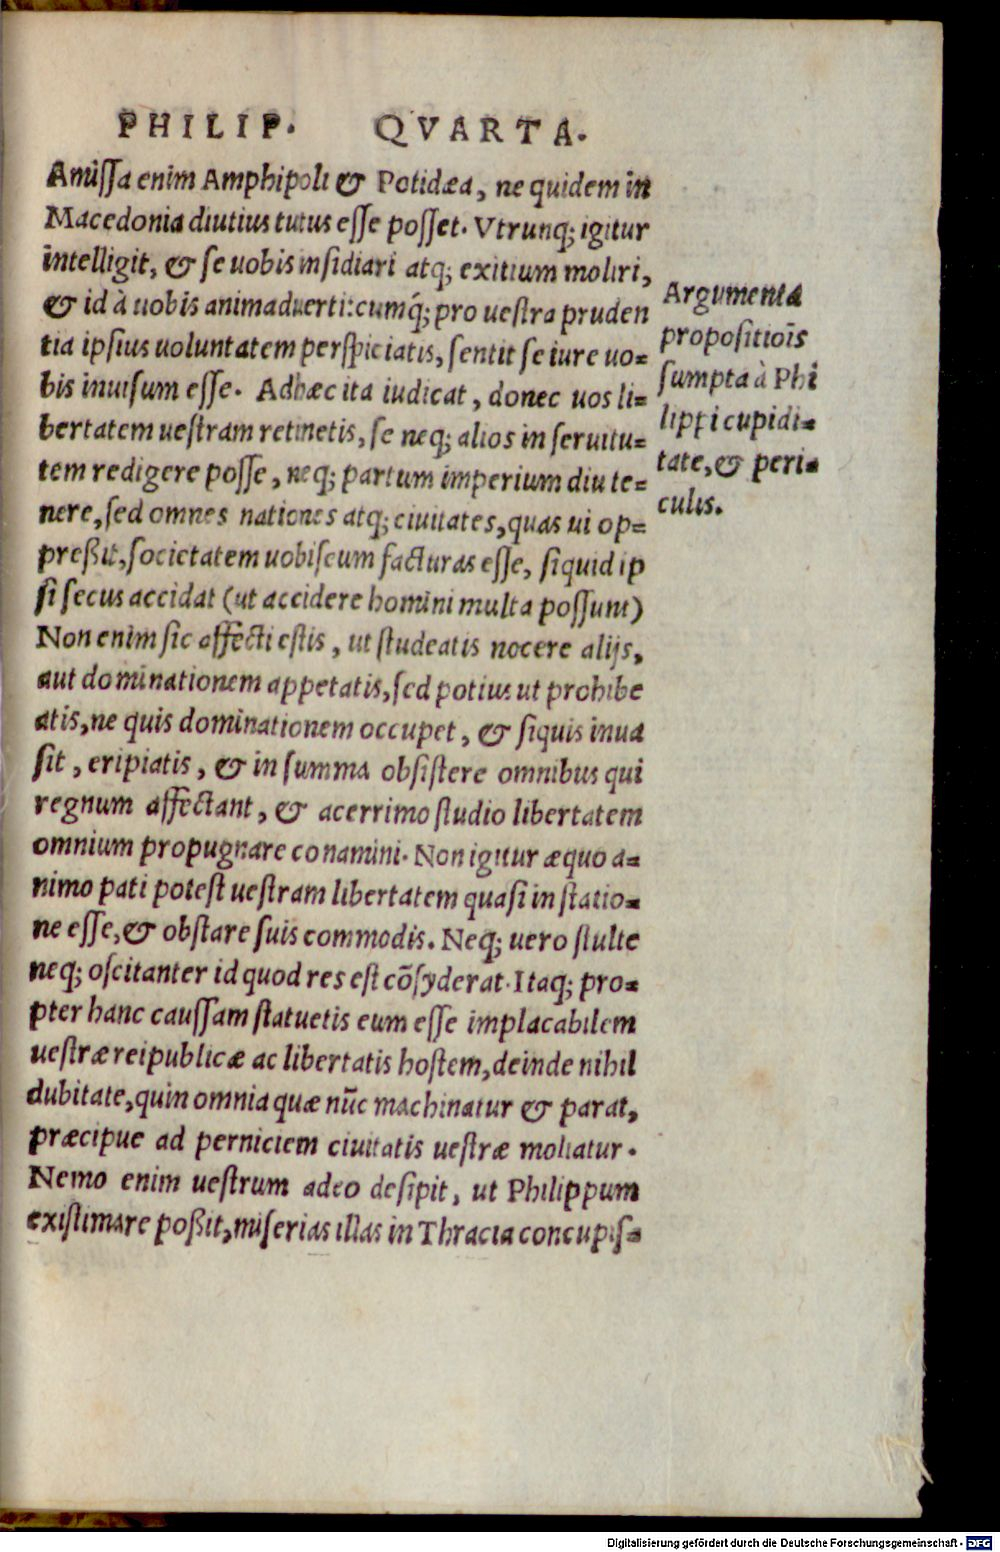 PHILIP. QVARTA.
Amissa enim Amphipoli & Potidæa, ne quidem in
Macedonia diutius tutus esse posset. Vtrunq; igitur
intelligit, & se uobis insidiari atq; exitium moliri,
& id à uobis animaduerti: cumq́; pro uestra pruden
tia ipsius uoluntatem perspiciatis, sentit se iure uo=
bis inuisum esse. Adhæc ita iudicat, donec uos li=
bertatem uestram retinetis, se neq; alios in seruitu=
tem redigere posse, neq; partum imperium diu te=
nere, sed omnes nationes atq; ciuitates, quas ui op=
preßit, societatem uobiscum facturas esse, siquid ip
si secus accidat (ut accidere homini multa possunt)
Non enim sic affecti estis, ut studeatis nocere alijs,
aut dominationem appetatis, sed potius ut prohibe
atis, ne quis dominationem occupet, & siquis inua
sit, eripiatis, & in summa obsistere omnibus qui
regnum affectant, & acerrimo studio libertatem
omnium propugnare conamini. Non igitur æquo a=
nimo pati potest uestram libertatem quasi in statio=
ne esse, & obstare suis commodis. Neq; uero stulte
neq; oscitanter id quod res est cōsyderat. Itaq; pro=
pter hanc caussam statuetis eum esse implacabilem
uestræ reipublicæ ac libertatis hostem, deinde nihil
dubitate, quin omnia quæ nūc machinatur & parat,
præcipue ad perniciem ciuitatis uestræ moliatur.
Nemo enim uestrum adeo desipit, ut Philippum
existimare poßit, miserias illas in Thracia concupis=
Argumenta
propositiōis
sumpta à Phi
lippi cupidi=
tate, & peri=
culis.
Digitalisierung gefördert durch die Deutsche Forschungsgemeinschaft - DFG